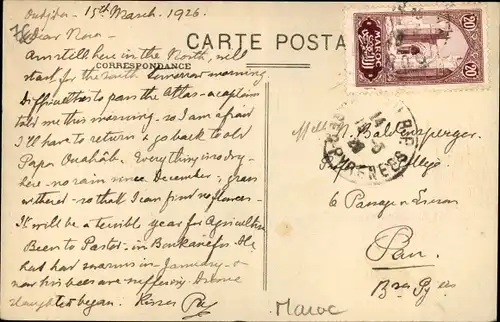 Oudjda. 15th March. 1926.
Dear Nora.
CARTE POSTA
Am still here in the North, will
CORRESPONDANCE
start for the South tomorrow morning
Difficult to pass the Atlas - a captain
told me this morning - so I am afraid
I'll have to return & go back to old
Papa Ouahab. Everything is so dry
here - no rain since December, grass
withered - so that I can find no flowers.
It will be a terrible year for Agriculture
Been to Pastor - in Berkane for. He
has had swarms in - January - &
now his bees are suffering. Drone
slaughter began. Kisses
20 MAROC 20
Melle N. Baldensperger
6 Passage
Pau
Bses Pyes
PYRENEES
Maroc